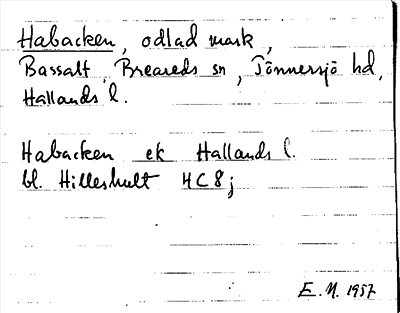 Habacken, odlad mark,
Bassalt, Breareds sn, Tönnersjö hd,
Hallands l.
Habacken ek Hallands l.
bl. Hilleshult 4C8j
E.N. 1957